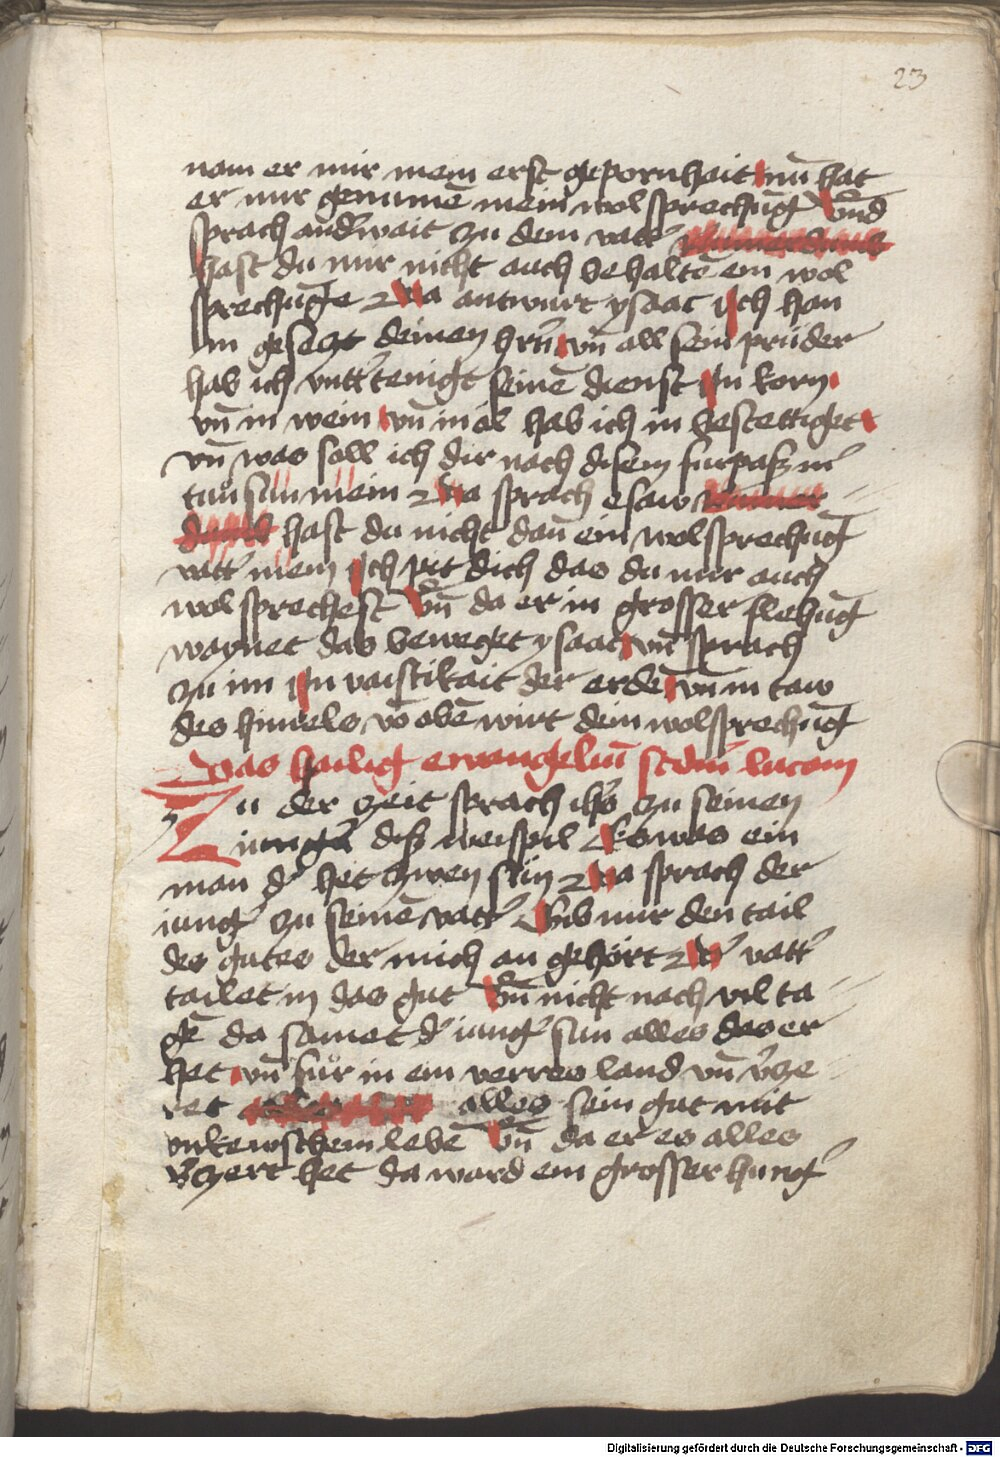 23
nam er mir mein erst gepornhait nū hat
er mir genumē mein wol sprechūg Vnd
sprach and'wait zu dem vatt'
hast du mir nicht auch behaltē ein wol
sprechūge Da antwurt ysaac Ich han
in geseczt deinen hrn̄ vn̄ all sein prüder
hab ich vntt'tenigt seinē dienst In korn
vn̄ in wein vn̄ in öl hab ich in bestettiget
vn̄ was soll ich dir nach disem furpasz m'
tun sun mein Da sprach esaw
hast du nicht dan̄ ein wolsprechūg
vatt' mein Ich pit dich das du mir auch
wol sprechest Vn̄ da er in grosser flehūg
waynet das beweget ysaac vn̄ sprach
zu im In vaistikait der erde vn̄ in taw
des himels vō obē wirt dein wolsprechūg
Das hailig ewangeliū scdm̄ lucam
Zu der zeit sprach ihs̄ zu seinen
iunger disz weispil Es was ein
man d' het zwen sün Da sprach der
iung' zu seinē vatt' Gib mir den tail
des gutes der mich an gehört D' vatt'
tailet in das gut Vn̄ nicht nach vil ta
gē da samet d' iung' sun alles das er
het vn̄ fůr in ein verres land vn̄ v'ze
ret alles sein gut mit
vnkewschem lebē Vn̄ da er es alles
v'zert het da ward ein grosser hung'
Digitalisierung gefördert durch die Deutsche Forschungsgemeinschaft - DFG